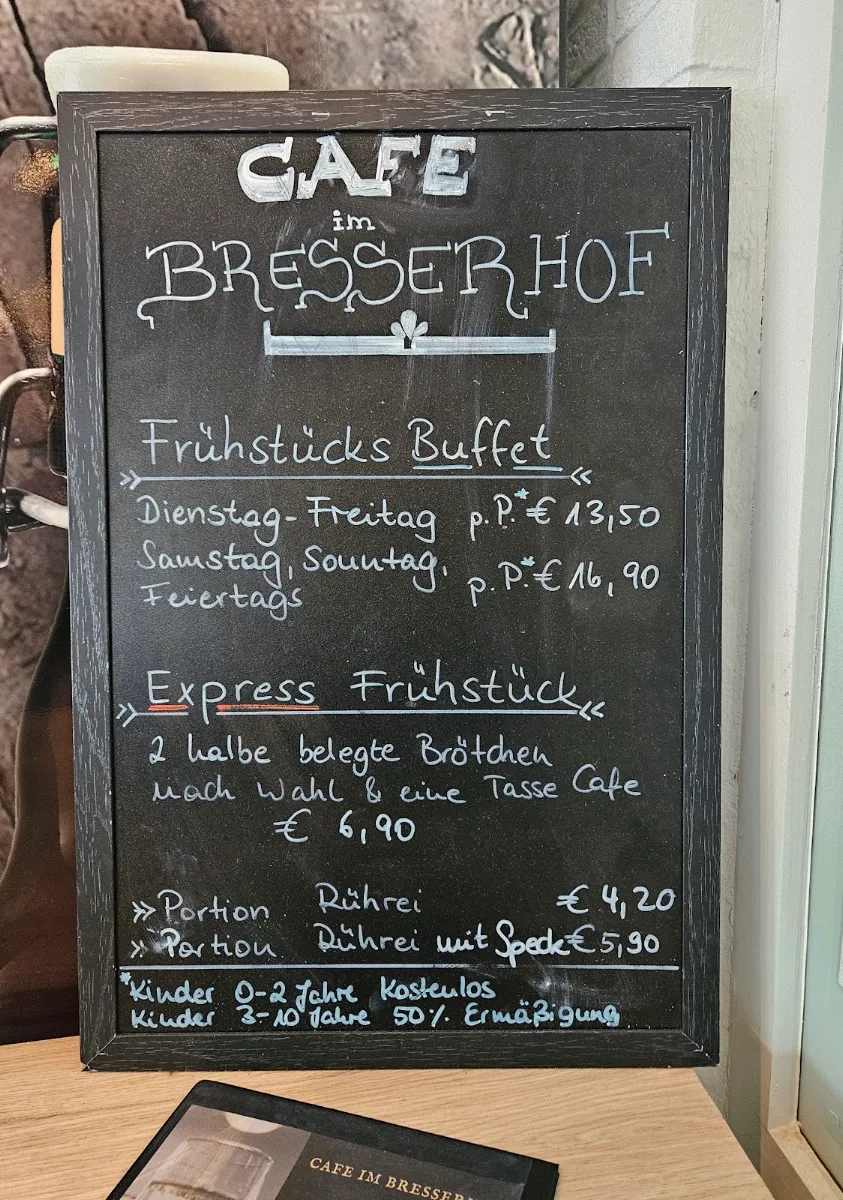 CAFE
im
BRESSERHOF
Frühstücks Buffet
Dienstag-Freitag p.P.* € 13,50
Samstag, Sonntag,
Feiertags p.P.* € 16,90
Express Frühstück
2 halbe belegte Brötchen
nach Wahl & eine Tasse Cafe
€ 6,90
» Portion Rührei € 4,20
» Portion Rührei mit Speck € 5,90
*Kinder 0-2 Jahre Kostenlos
Kinder 3-10 Jahre 50% Ermäßigung
CAFE IM